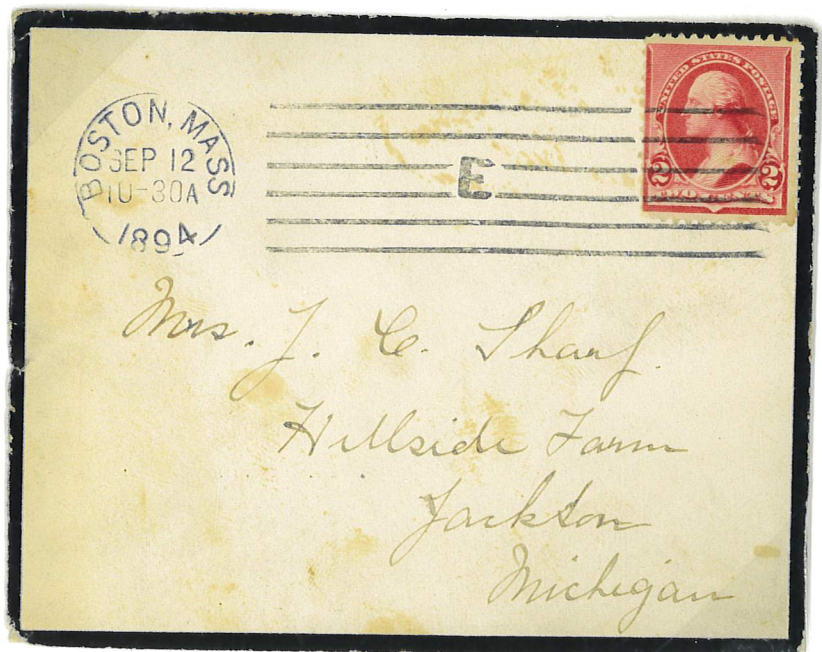 BOSTON, MASS
SEP 12
10-30A
1894
E
UNITED STATES POSTAGE
2 2
TWO CENTS
Mrs. J. C. Sharf.
Hillside Farm
Jackson
Michigan